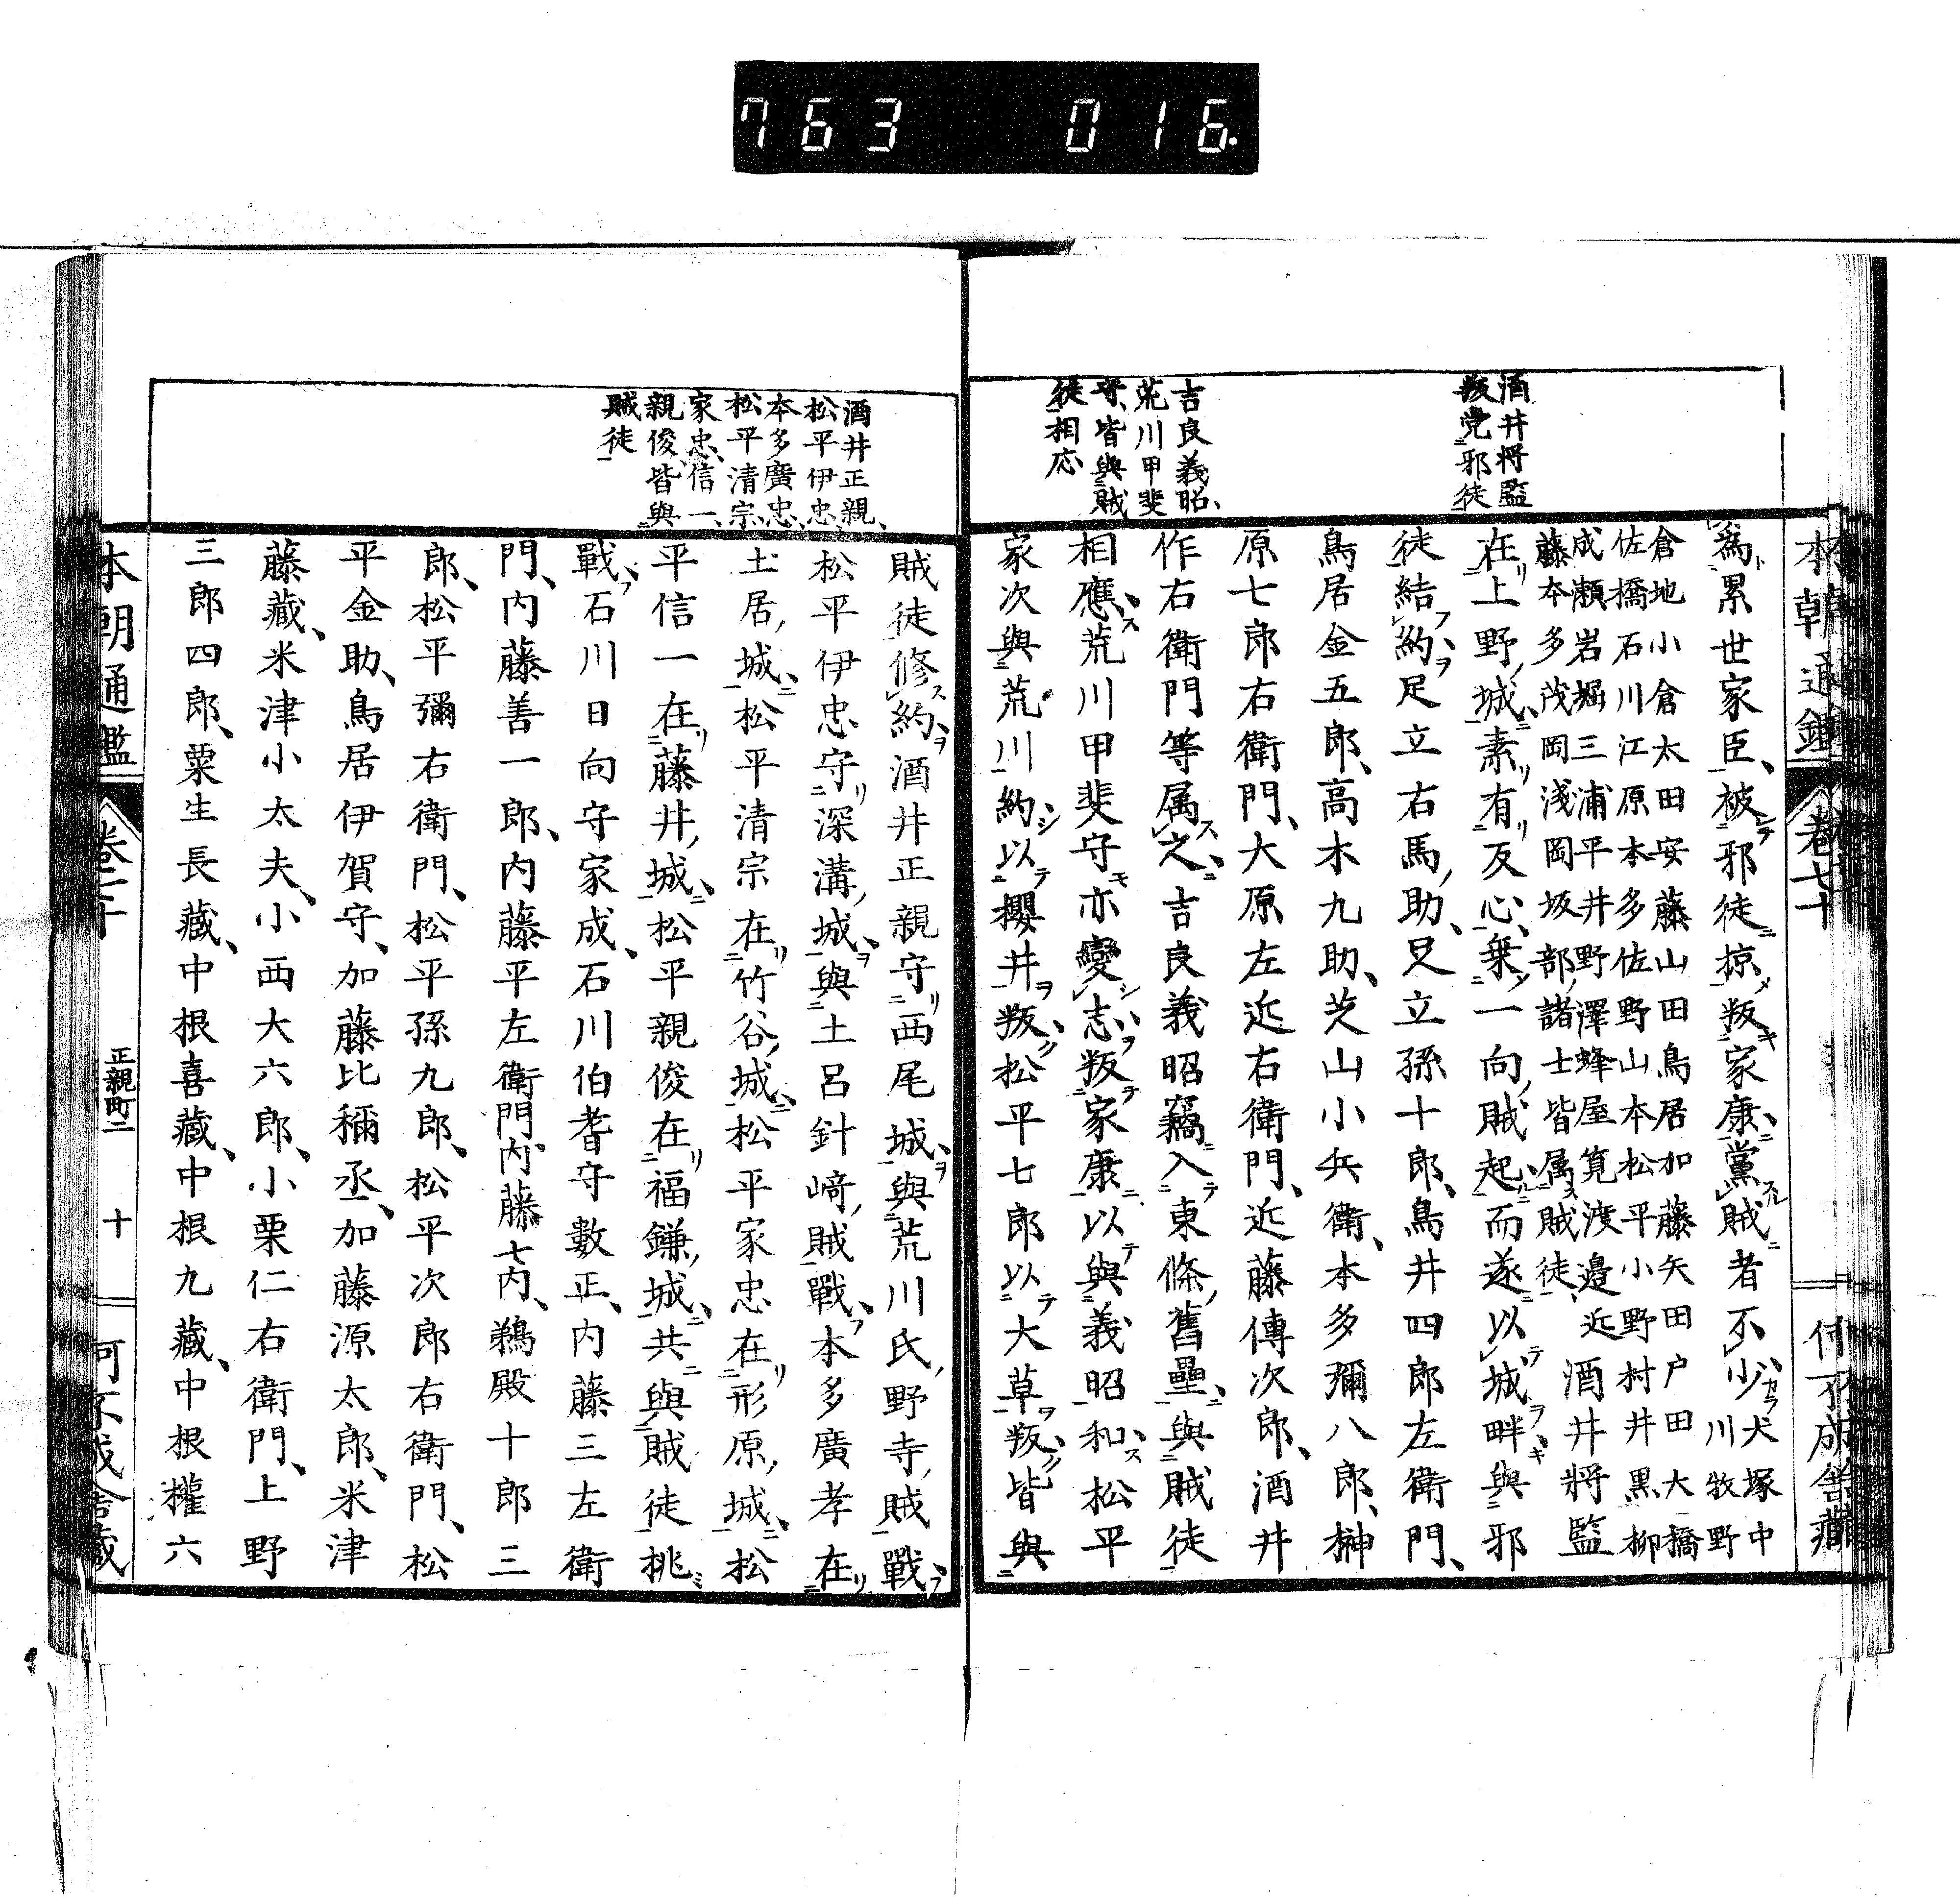 763 016
本朝通鑑 卷七十
酒井將監
叛党邪徒
吉良義昭、
荒川甲斐
守、皆與賊
徒相応
爲累世家臣、被邪徒掠、叛家康、黨賊者不少、犬塚中
川牧野
倉地小倉太田安藤山田鳥居加藤矢田戸田大橋
佐橋石川江原本多佐野山本松平小野村井黒柳
成瀬岩堀三浦平井野澤蜂屋筧渡邉近
藤本多茂岡浅岡坂部諸士皆属賊徒、
酒井將監
在上野城、素有反心、乗一向賊起、而遂以城畔與邪
徒結約、足立右馬助、足立孫十郎、鳥井四郎左衛門、
鳥居金五郎、高木九助、芝山小兵衛、本多彌八郎、榊
原七郎右衛門、大原左近右衛門、近藤傳次郎、酒井
作右衛門等属之、吉良義昭竊入東條舊壘、與賊徒
相應、荒川甲斐守亦變志叛家康、以與義昭和、松平
家次與荒川約以櫻井叛、松平七郎以大草叛、皆與
酒井正親、
松平伊忠、
本多廣忠、
松平清宗、
家忠、信一、
親俊、皆與
賊徒
賊徒修約、酒井正親守西尾城、與荒川氏野寺賊戰、
松平伊忠守深溝城、與土呂針﨑賊戰、本多廣孝在
土居城、松平清宗在竹谷城、松平家忠在形原城、松
平信一在藤井城、松平親俊在福鎌城、共與賊徒挑
戰、石川日向守家成、石川伯耆守數正、内藤三左衛
門、内藤善一郎、内藤平左衛門、内藤七内、鵜殿十郎三
郎、松平彌右衛門、松平孫九郎、松平次郎右衛門、松
平金助、鳥居伊賀守、加藤比稱丞、加藤源太郎、米津
藤藏、米津小太夫、小西大六郎、小栗仁右衛門、上野
三郎四郎、粟生長藏、中根喜藏、中根九藏、中根權六
本朝通鑑 卷七十 正親町二 十